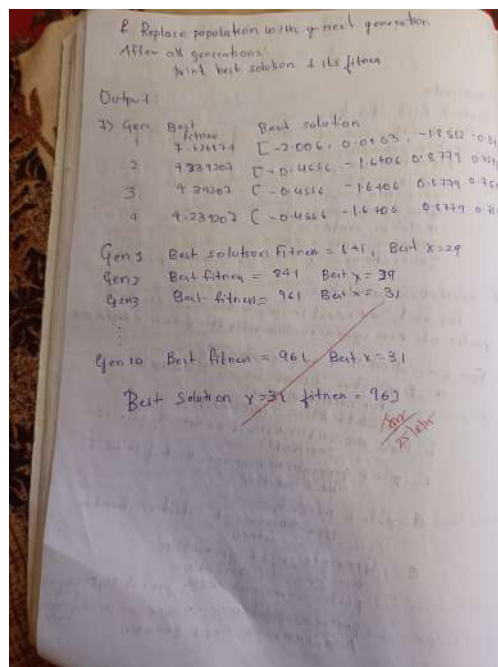 & Replace population with g next generation
After all generations:
Print best solution & its fitnen
Output:
Gen Best fitnen Best solution
1 7.626874 [-2.006, 0.0163, -1.8552
2 4.239207 [-0.4656 -1.6406 0.8779
3 4.39207 [-0.4656 -1.6406 0.8779
4 4.239207 [-0.4656 -1.6406 0.8779
Gen1 Best solution Fitnen = 841, Best x=29
Gen2 Best fitnen = 841 Best x= 39
Gen3 Best fitnen= 961 Best x= 31
Gen 10 Best fitnen = 961 Best x=31
Best Solution x=31 fitnen = 963